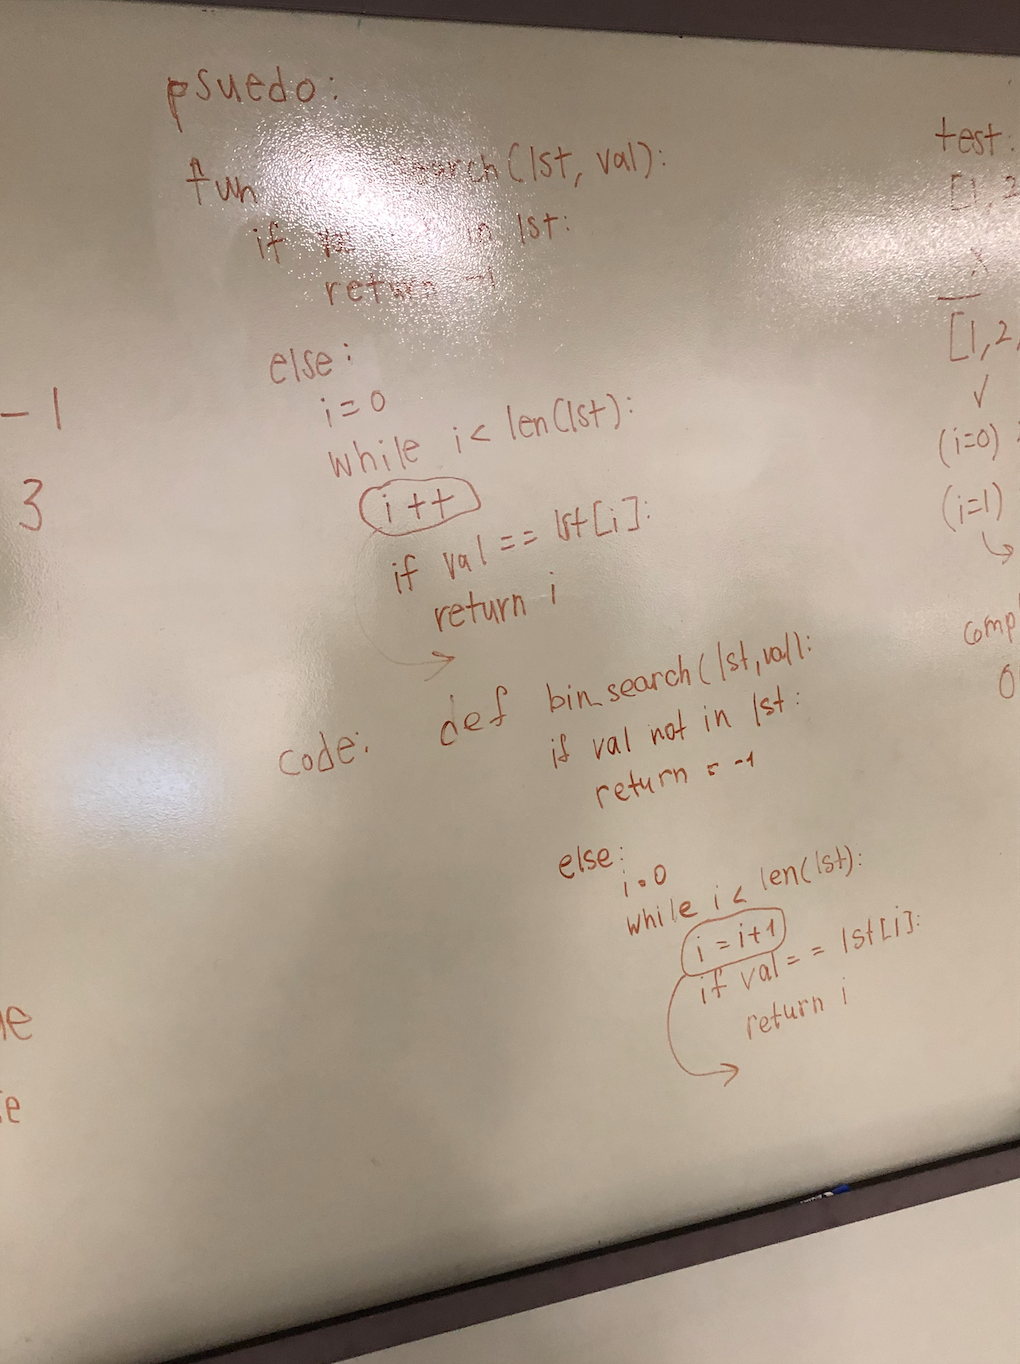 psuedo:
fun search(lst, val):
if in lst:
return -1
else:
i=0
while i< len(lst):
i++
if val == lst[i]:
return i
code:
def bin_search(lst,val):
if val not in lst:
return = -1
else:
i=0
while i < len(lst):
i = i+1
if val == lst[i]:
return i
-1
3
e
e
test:
[1, 2
[1,2,
✓
(i=0)
(i=1)
comp
O